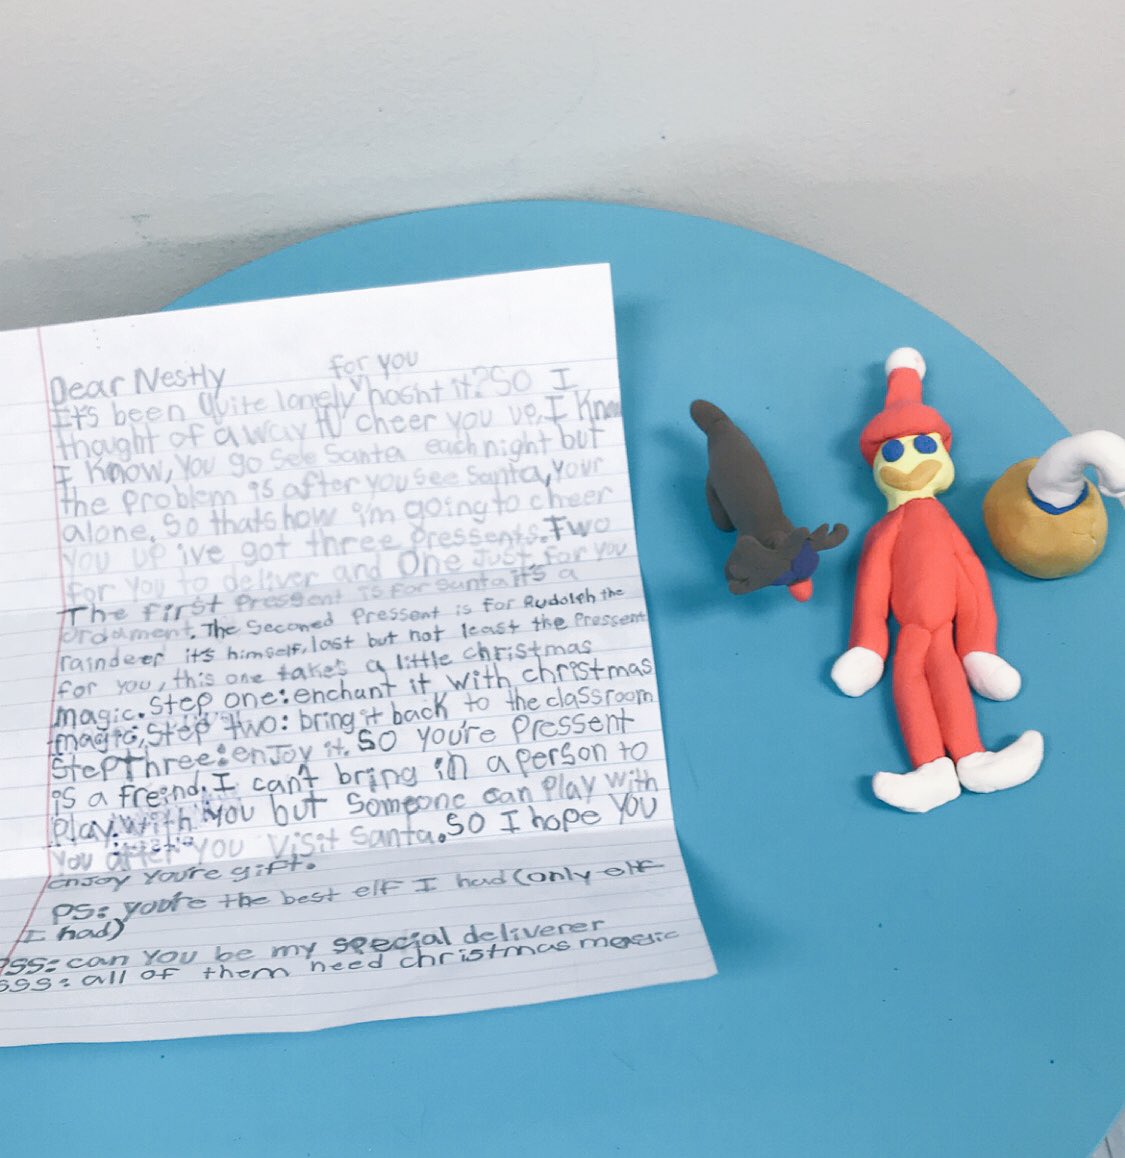 for you
Dear Nestly
It's been quite lonely hasnt it? So I
thought of a way to cheer you up, I Know
I Know, you go see Santa each night but
the problem is after you see Santa, your
alone. So thats how i'm going to cheer
you up ive got three pressents. Two
for you to deliver and One Just for you
The first Pressent is for santa it's a
ordament. The seconed Pressent is for Rudolph the
raindeer it's himself, last but not least the Pressent
for you, this one takes a little christmas
magic. Step one: enchant it with christmas
magic, Step two: bring it back to the classroom
Step three: enjoy it. SO you're Pressent
is a freind. I can't bring in a person to
play with you but someone can play with
you after you visit Santa. SO I hope you
enjoy you're gift.
PS: you're the best elf I had (only elf
I had)
PSS: can you be my special deliverer
SSS: all of them need christmas magic